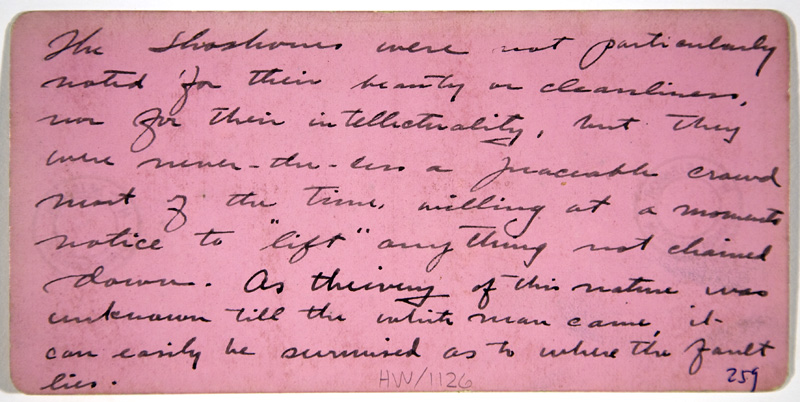 The Shoshones were not particularly
noted for their beauty or cleanliness,
nor for their intellectuality, but they
were never-the-less a peaceable crowd
most of the time, willing at a moments
notice to "lift" anything not chained
down. As thieving of this nature was
unknown till the white man came, it
can easily be surmised as to where the fault
lies.
HW/1126
259